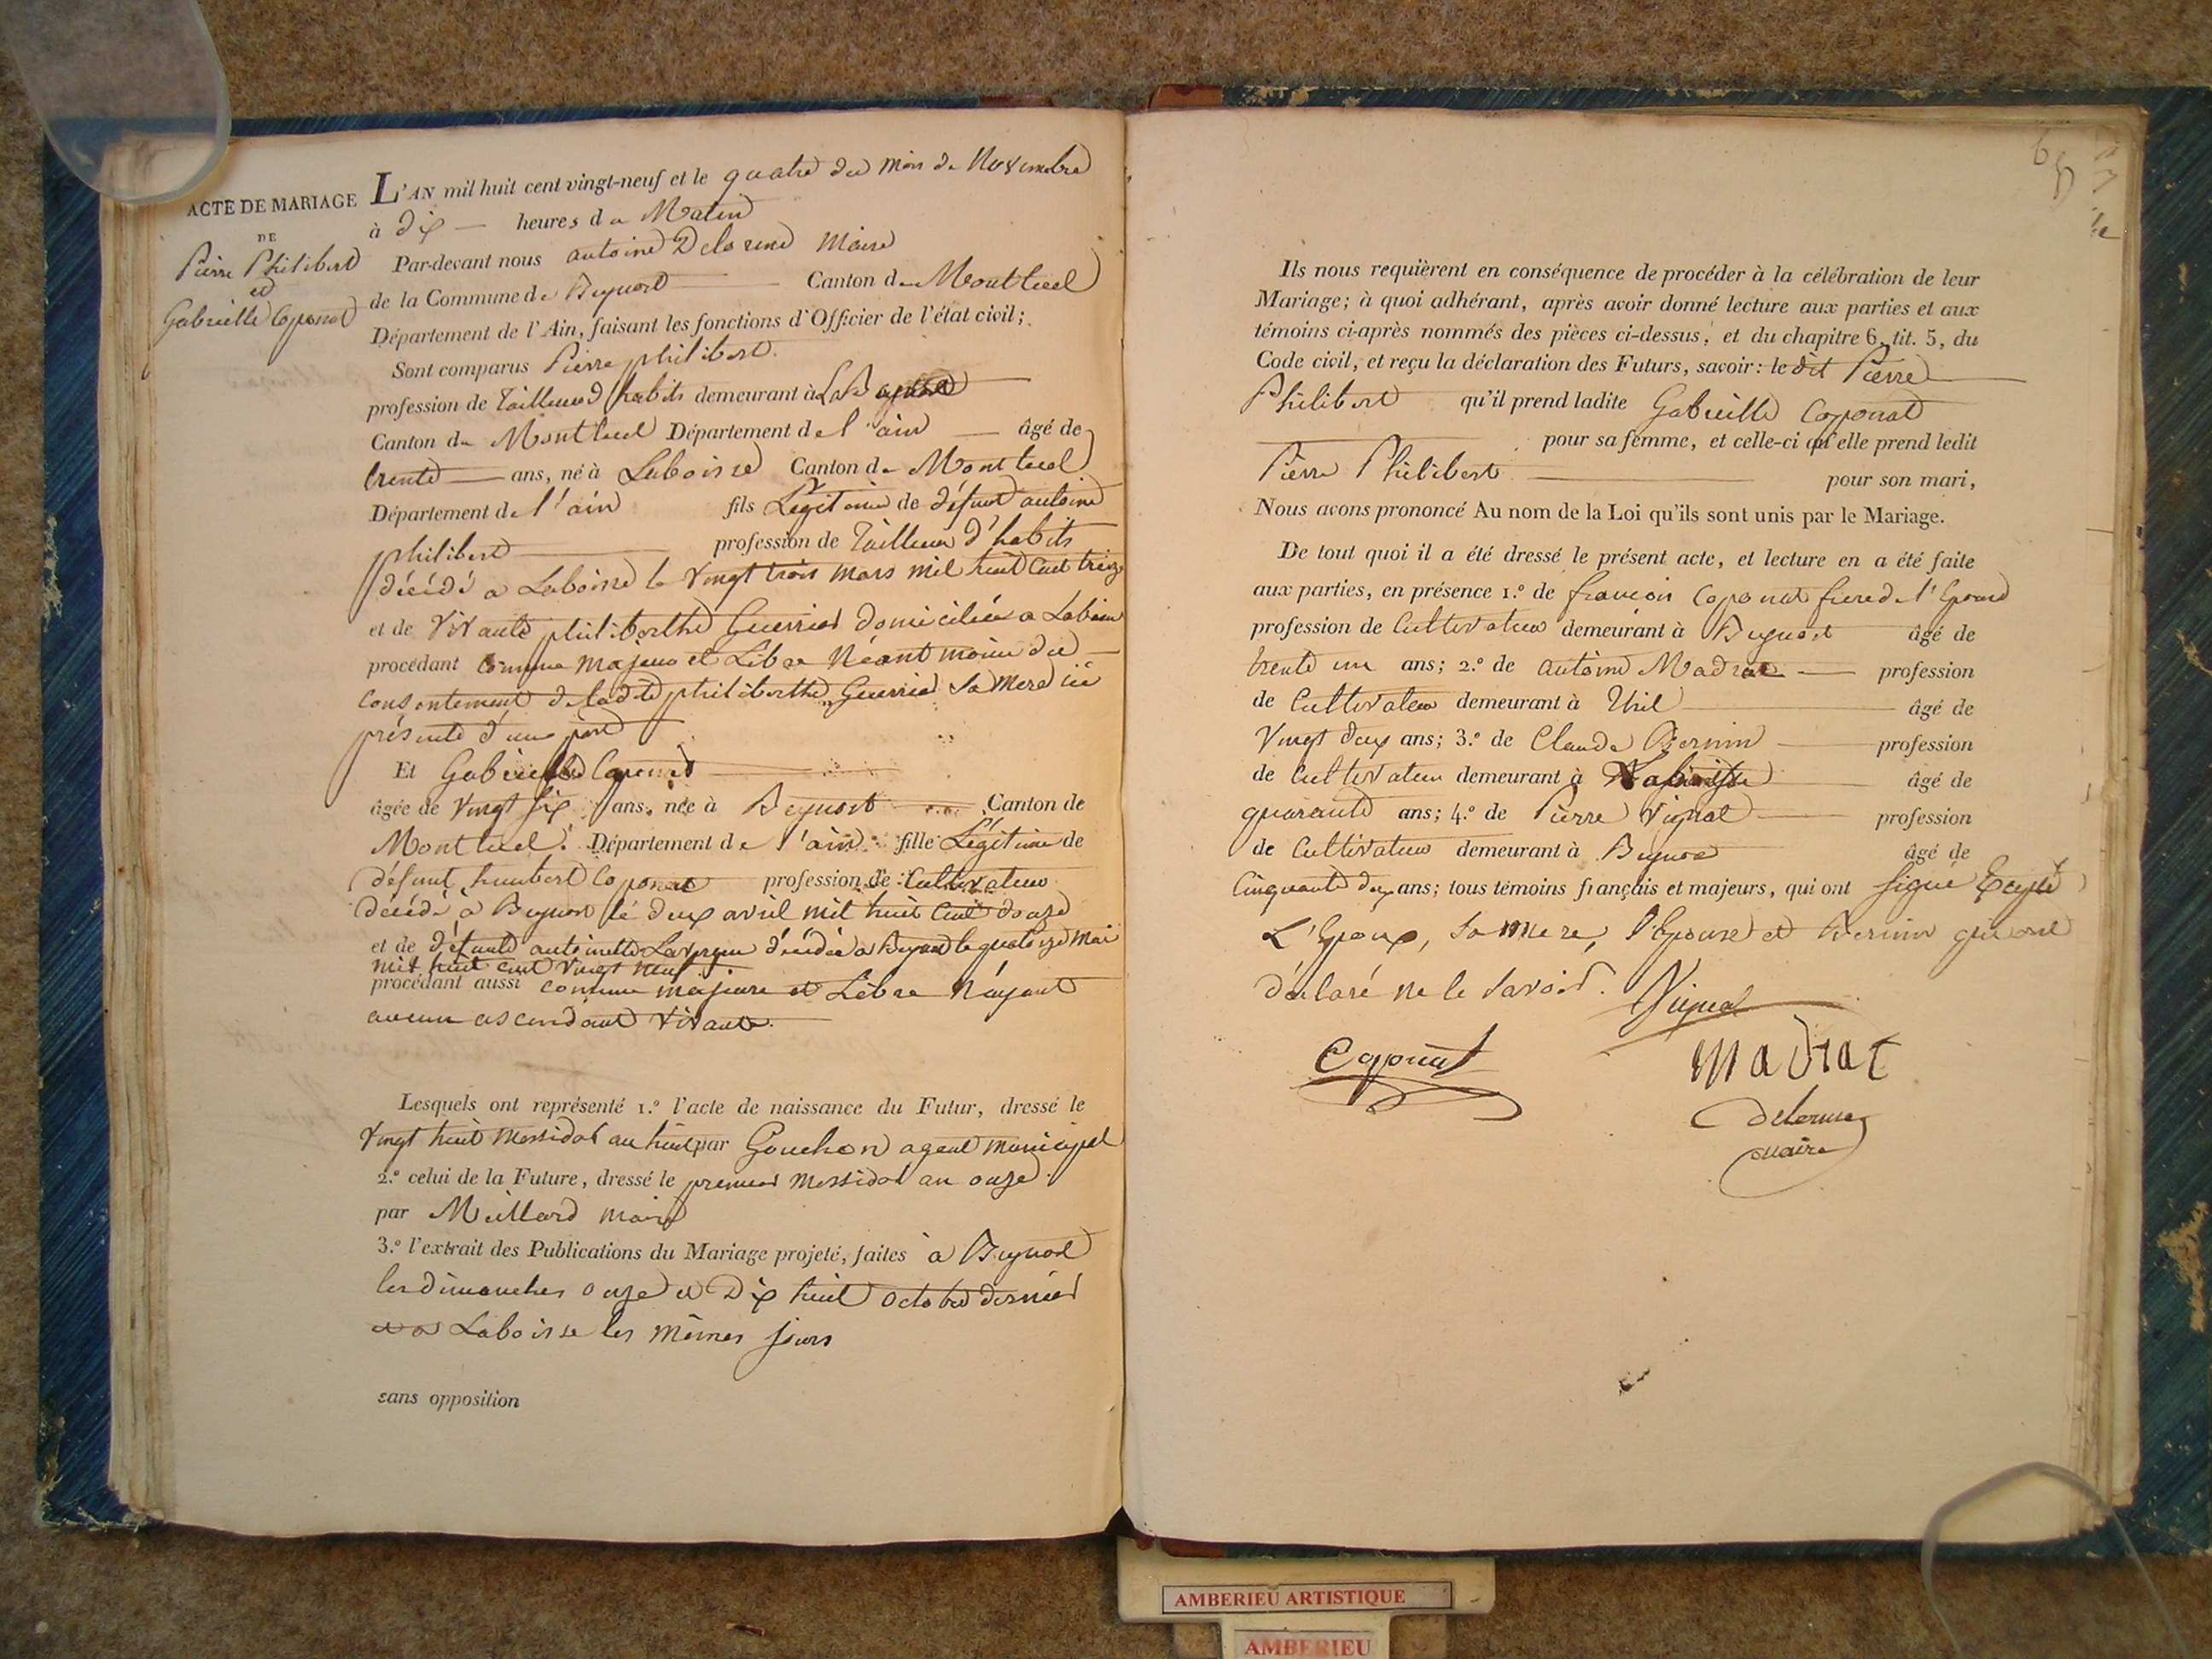 ACTE DE MARIAGE
DE
Pierre Philibert
et
Gabrielle Coponat
L'AN mil huit cent vingt-neuf et le quatre du mois de Novembre
à dix heures du Matin
Par-devant nous antoine Delorme Maire
de la Commune de Beynost Canton de Montluel
Département de l'Ain, faisant les fonctions d'Officier de l'état civil;
Sont comparus Pierre philibert
profession de Tailleur d'habits demeurant à
Canton de Montluel Département de l'ain âgé de
trente ans, né à Laboisse Canton de Montluel
Département de l'ain fils Légitime de défunt antoine
philibert profession de Tailleur d'habits
décédé a Laboisse le vingt trois mars mil huit cent treize
et de vivante philiberthe Guerrier domiciliée a Laboisse
procédant comme majeur et Libre Néantmoins du
consentement de ladite philiberthe Guerrier sa Mere ici
présente d'une part
Et Gabrielle Coponat
âgée de vingt six ans, née à Beynost Canton de
Montluel Département de l'ain fille Légitime de
défunt humbert Coponat profession de Cultivateur
décédé à Beynost le deux avril mil huit cent douze
et de défunte antoinette décédée a Beynost le quatorze Mai
mil huit cent vingt neuf
procédant aussi comme majeure et Libre N'ayant
aucun ascendant vivant.
Lesquels ont représenté 1.º l'acte de naissance du Futur, dressé le
vingt huit Messidor an huit par Gouchon agent municipal
2.º celui de la Future, dressé le premier Messidor an onze
par Millard maire
3.º l'extrait des Publications du Mariage projeté, faites à Beynost
les dimanches onze et Dix huit octobre dernier
et a Laboisse les mêmes jours
sans opposition
65
Ils nous requièrent en conséquence de procéder à la célébration de leur
Mariage; à quoi adhérant, après avoir donné lecture aux parties et aux
témoins ci-après nommés des pièces ci-dessus, et du chapitre 6, tit. 5, du
Code civil, et reçu la déclaration des Futurs, savoir: le dit Pierre
Philibert qu'il prend ladite Gabrielle Coponat
pour sa femme, et celle-ci qu'elle prend ledit
Pierre Philibert pour son mari,
Nous avons prononcé Au nom de la Loi qu'ils sont unis par le Mariage.
De tout quoi il a été dressé le présent acte, et lecture en a été faite
aux parties, en présence 1.º de francois Coponat frere de l'Epouse
profession de Cultivateur demeurant à Beynost âgé de
trente un ans; 2.º de antoine Madrat profession
de Cultivateur demeurant à Thil âgé de
vingt deux ans; 3.º de Claude Bernin profession
de Cultivateur demeurant à Laboisse âgé de
quarante ans; 4.º de Pierre Vignat profession
de Cultivateur demeurant à Beynost âgé de
Cinquante deux ans; tous témoins français et majeurs, qui ont signé Excepté
L'Epoux, sa mere, l'Epouse et Bernin qui ont
déclaré ne le savoir.
Vignat
Coponat
Madrat
delorme
maire
AMBERIEU ARTISTIQUE
AMBERIEU